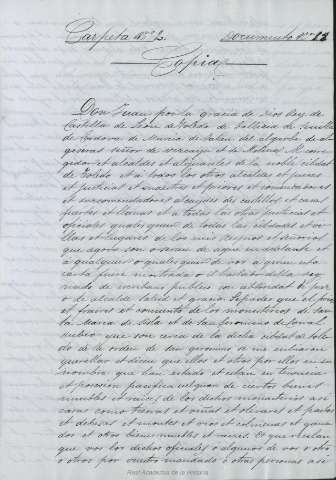 Carpeta nº 2. Documento nº 23
Copia
Don Juan por la gracia de Dios Rey de
Castilla de Leon de Toledo de Gallicia de Sevilla
de Cordova de Murcia de Jahen del algarbe de al
gesiras señor de viscaya et de Molina. A corre
gidor et alcaldes et alguaciles de la noble cibdat
de Toledo et a todos los otros alcaldes et jueces
et justicias et maestres et priores et comendadores
et subcomendadores alcaydes de castillos et casas
fuertes et llanas et a todas las otras justicias et
oficiales qualesquier de todas las cibdades et vi
llas et lugares de los mis Regnos et señorios
que agora son o seran de aqui en adelante et
a qualquier o qualesquier de vos a quien esta
carta fuere mostrada o el traslado della sig
nado de escribano publico con abtoridat de juez
o de alcalde salud et gracia. Sepades que el prior
et frayres et convento de los monesterios de san
ta Maria de Sisla et de san geronimo de
que son cerca de la dicha cibdat de tole
do de la orden de san geronimo se me enbiaron
querellar et dicen que ellos et otros por ellos en su
nombre que han estado et estan en tenencia
et posesion pacifica de ciertos bienes
muebles et raises de los dichos monasterios asi
casas como tierras et viñas et olivares et prados
et dehesas et montes et rios et colmenas et gana
dos et otros bienes muebles et raices. Et que recelan
que vos los dichos oficiales o algunos de vos o otro
o otros por vuestro mandado o otras personas asi
Real Academia de la Historia